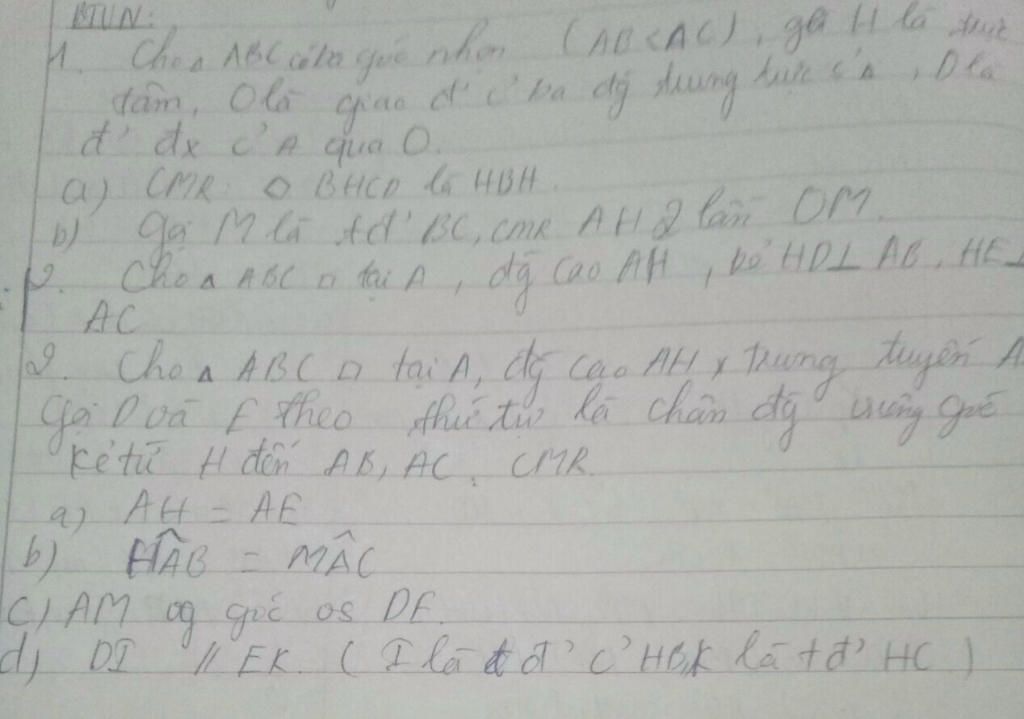 BTVN:
1. Cho △ ABC có ba góc nhọn (AB < AC), gọi H là trực
tâm, O là giao đ' c' ba đg trung trực c' △, D là
đ' đx c' A qua O.
a) CMR: ◇ BHCD là HBH.
b) Gọi M là tđ' BC, CMR AH 2 lần OM.
2. Cho △ ABC □ tại A, đg cao AH, kẻ HD⊥ AB, HE⊥
AC
2. Cho △ ABC □ tại A, đg cao AH, trung tuyến A
Gọi D và E theo thứ tự là chân đg vuông góc
kẻ từ H đến AB, AC. CMR.
a) AH = AE
b) HÂB = MÂC
c) AM og góc os DE.
d) DI // EK. (I là tđ' c' HB, K là tđ' HC)